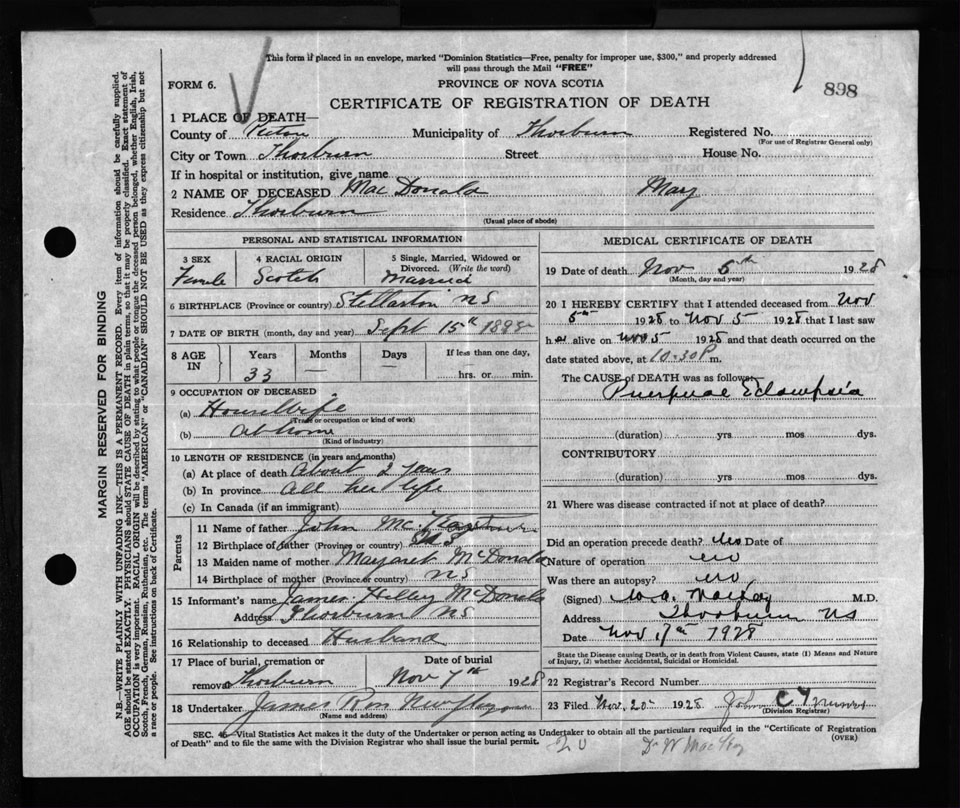 This form if placed in an envelope, marked "Dominion Statistics—Free, penalty for improper use, $300," and properly addressed
will pass through the Mail "FREE"
898
FORM 6.
PROVINCE OF NOVA SCOTIA
CERTIFICATE OF REGISTRATION OF DEATH
1 PLACE OF DEATH—
County of Pictou Municipality of Thorburn Registered No.
(For use of Registrar General only)
City or Town Thorburn Street House No.
If in hospital or institution, give name
2 NAME OF DECEASED MacDonald Mary
Residence Thorburn
(Usual place of abode)
PERSONAL AND STATISTICAL INFORMATION
3 SEX 4 RACIAL ORIGIN 5 Single, Married, Widowed or
Divorced. (Write the word)
Female Scotch Married
6 BIRTHPLACE (Province or country) Stellarton NS
7 DATE OF BIRTH (month, day and year) Sept 15th
8 AGE IN Years Months Days If less than one day,
33 — — hrs. or min.
9 OCCUPATION OF DECEASED
(a) Housewife
(Trade or occupation or kind of work)
(b) At home
(Kind of industry)
10 LENGTH OF RESIDENCE (in years and months)
(a) At place of death About 2 years
(b) In province All her life
(c) In Canada (if an immigrant)
Parents
11 Name of father John
12 Birthplace of father (Province or country) NS
13 Maiden name of mother Margaret McDonald
14 Birthplace of mother (Province or country) NS
15 Informant's name James McDonald
Address Thorburn NS
16 Relationship to deceased Husband
17 Place of burial, cremation or Date of burial
removal Thorburn Nov 7th 1928
18 Undertaker James
(Name and address)
MEDICAL CERTIFICATE OF DEATH
19 Date of death Nov 5th 1928
(Month, day and year)
20 I HEREBY CERTIFY that I attended deceased from Nov
5th 1928 to Nov 5 1928 that I last saw
her alive on Nov 5 1928 and that death occurred on the
date stated above, at 10.30 P m.
The CAUSE of DEATH was as follows:
Puerperal Eclampsia
(duration) yrs mos dys.
CONTRIBUTORY
(duration) yrs mos dys.
21 Where was disease contracted if not at place of death?
Did an operation precede death? No Date of
Nature of operation no
Was there an autopsy? no
(Signed) W.A. MacKay M.D.
Address Thorburn NS
Date Nov 1928
State the Disease causing Death, or in death from Violent Causes, state (1) Means and Nature
of Injury, (2) whether Accidental, Suicidal or Homicidal.
22 Registrar's Record Number
23 Filed Nov. 20th 1928 John
(Division Registrar)
SEC. 46—Vital Statistics Act makes it the duty of the Undertaker or person acting as Undertaker to obtain all the particulars required in the "Certificate of Registration
of Death" and to file the same with the Division Registrar who shall issue the burial permit.
(OVER)
20 Dr W MacKay
MARGIN RESERVED FOR BINDING
N.B.—WRITE PLAINLY WITH UNFADING INK—THIS IS A PERMANENT RECORD. Every item of information should be carefully supplied.
AGE should be stated EXACTLY. PHYSICIANS should STATE CAUSE OF DEATH in plain terms, so that it may be properly classified. Exact statement of
OCCUPATION is very important. RACIAL ORIGIN will be described by stating to what people or tongue the deceased person belonged, whether English, Irish,
Scotch, French, German, Russian, Ruthenian, etc. The terms "AMERICAN" or "CANADIAN" SHOULD NOT BE USED as they express citizenship but not
a race or people. See instructions on back of Certificate.